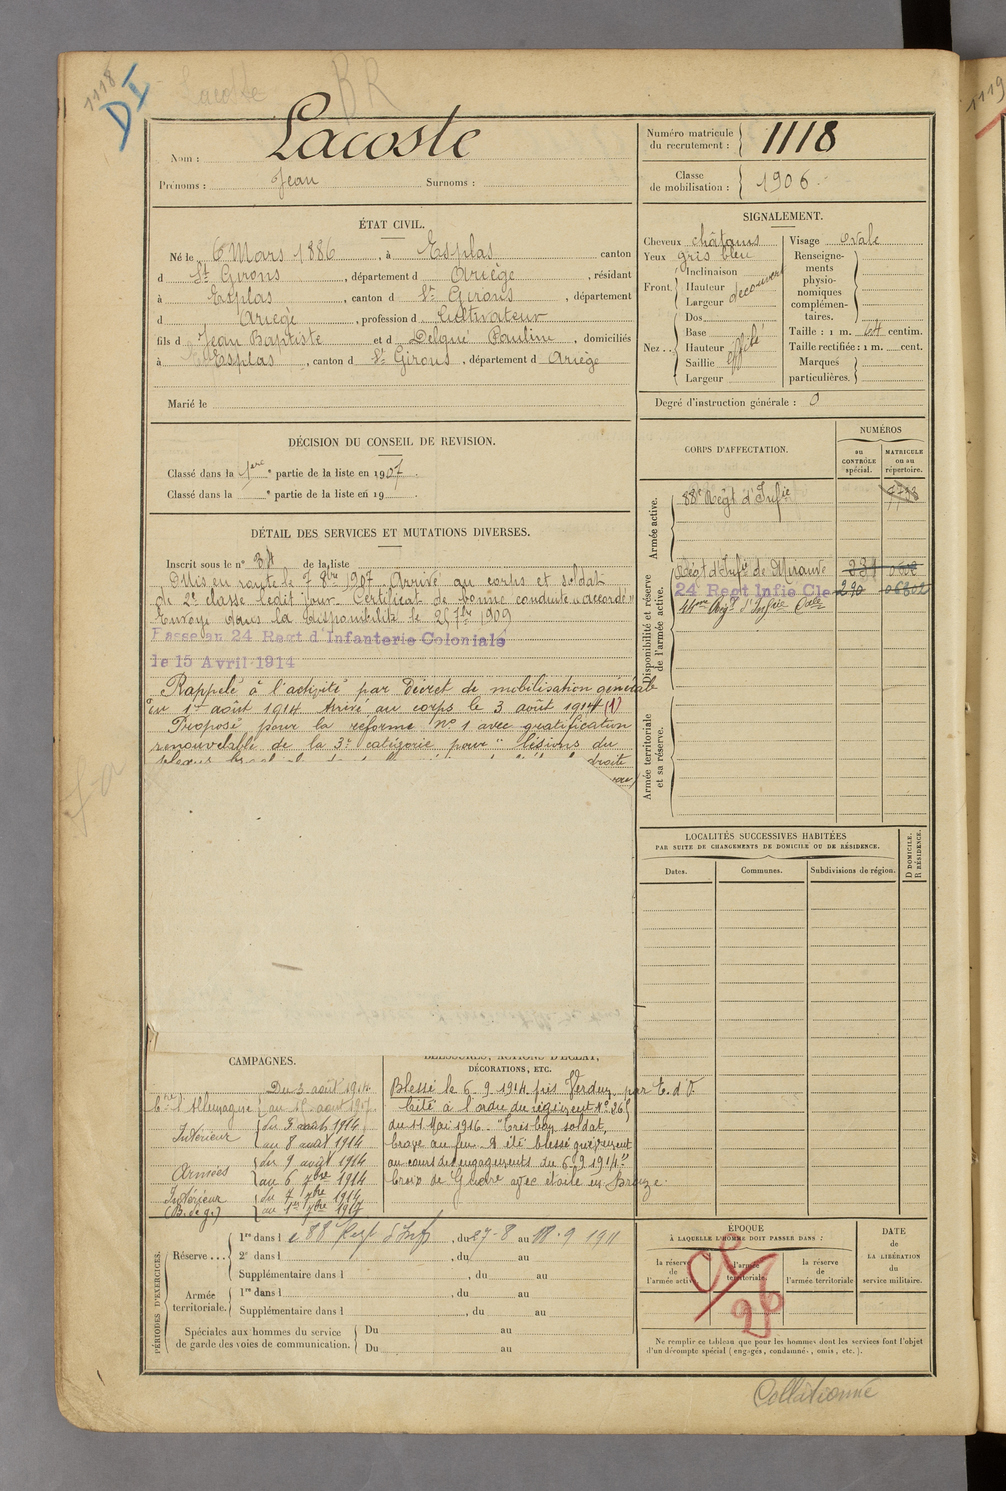 1118
DI
Lacoste
BR
1119
Nom : Lacoste
Prénoms : Jean Surnoms :
Numéro matricule du recrutement : 1118
Classe de mobilisation : 1906
ÉTAT CIVIL.
Né le 6 Mars 1886, à Esplas canton
d St Girons, département d Ariège, résidant
à Esplas, canton d St Girons, département
d Ariège, profession d Cultivateur
fils d Jean Baptiste et d Delqué Pauline, domiciliés
à Esplas, canton d St Girons, département d Ariège
Marié le
SIGNALEMENT.
Cheveux châtains
Yeux gris bleu
Front. Inclinaison
Hauteur découvert
Largeur
Nez .. Dos
Base
Hauteur effilé
Saillie
Largeur
Visage ovale
Renseignements physionomiques complémentaires.
Taille : 1 m. 64 centim.
Taille rectifiée : 1 m. cent.
Marques particulières.
Degré d'instruction générale : 0
DÉCISION DU CONSEIL DE REVISION.
Classé dans la 1ère partie de la liste en 1907.
Classé dans la e partie de la liste en 19
DÉTAIL DES SERVICES ET MUTATIONS DIVERSES.
Inscrit sous le n° 34 de la liste
Mis en route le 7 8bre 1907 Arrivé au corps et soldat
de 2e classe ledit jour. Certificat de bonne conduite "accordé"
Envoyé dans la disponibilité le 25 7bre 1909
Passe au 24 Regt d'Infanterie Coloniale
le 15 Avril 1914
Rappelé à l'activité par Décret de mobilisation générale
du 1er août 1914 Arrivé au corps le 3 août 1914 (1)
Proposé pour la réforme n° 1 avec gratification
renouvelable de la 3e catégorie pour "lésions du
droite
CORPS D'AFFECTATION.
NUMÉROS
au CONTRÔLE spécial.
MATRICULE ou au répertoire.
Armée active.
88e Régt d'Infie
Disponibilité et réserve de l'armée active.
Régt d'Infie de Mirande
24 Regt Infie Cle 290
44ème Régt d'Infie Cole
Armée territoriale et sa réserve.
LOCALITÉS SUCCESSIVES HABITÉES
PAR SUITE DE CHANGEMENTS DE DOMICILE OU DE RÉSIDENCE.
Dates.
Communes.
Subdivisions de région.
D DOMICILE.
R RÉSIDENCE.
CAMPAGNES.
Du 3 août 1914
Cre l'Allemagne
Intérieur du 3 août 1914
au 8 août 1914
Armées du 9 août 1914
au 6 7bre 1914
Intérieur du 7 7bre 1914
(B. de g.) au 1er 7bre 1917
BLESSURES, ACTIONS D'ÉCLAT,
DÉCORATIONS, ETC.
Blessé le 6.9.1914 près Verdun par E. d'O.
Cité à l'ordre du régiment N° 265
du 11 Mai 1916 "Très bon soldat,
brave au feu. A été blessé grièvement
au cours des engagements du 6.9.1914"
Croix de Guerre avec étoile en Bronze.
PÉRIODES D'EXERCICES.
Réserve ...
1re dans l e 88 Regt d'Inf, du 27-8 au 18.9 1911
2e dans l , du au
Supplémentaire dans l , du au
Armée territoriale.
1re dans l , du au
Supplémentaire dans l , du au
Spéciales aux hommes du service de garde des voies de communication.
Du au
Du au
ÉPOQUE
À LAQUELLE L'HOMME DOIT PASSER DANS :
la réserve de l'armée active
l'armée territoriale.
la réserve de l'armée territoriale
DATE de LA LIBÉRATION du service militaire.
26
Ne remplir ce tableau que pour les hommes dont les services font l'objet
d'un décompte spécial (engagés, condamnés, omis, etc.).
Collationné